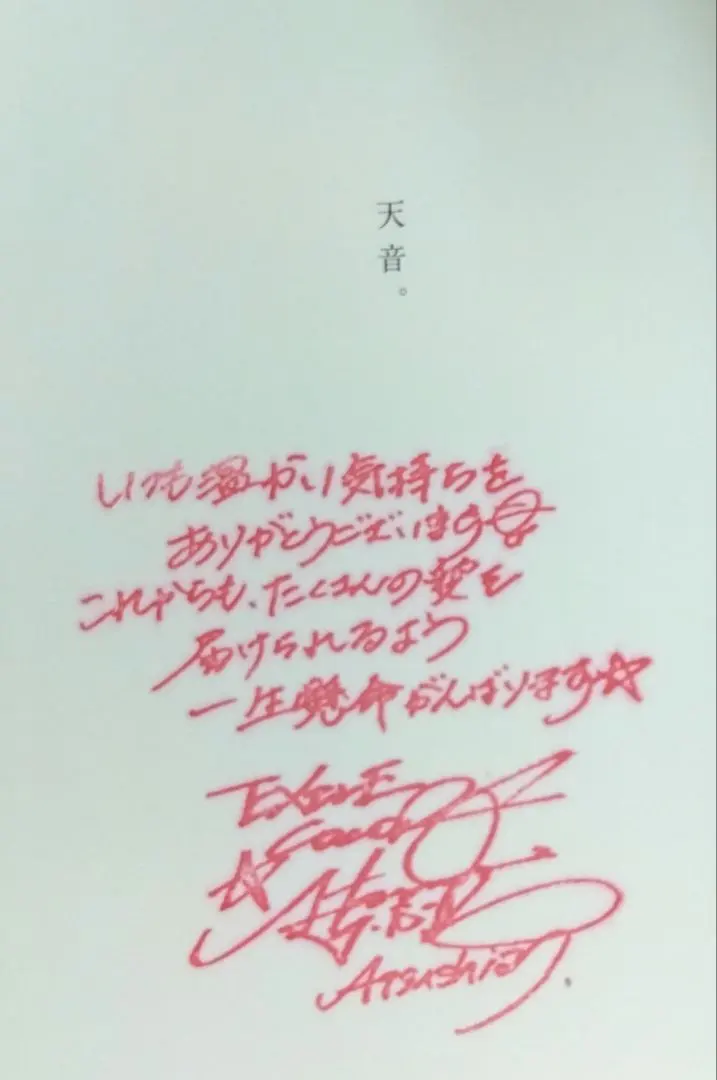 天音。
いつも温かい気持ちを
ありがとうございます
これからも、たくさんの愛を
届けられるよう
一生懸命がんばります☆
EXILE
☆
Atsushi